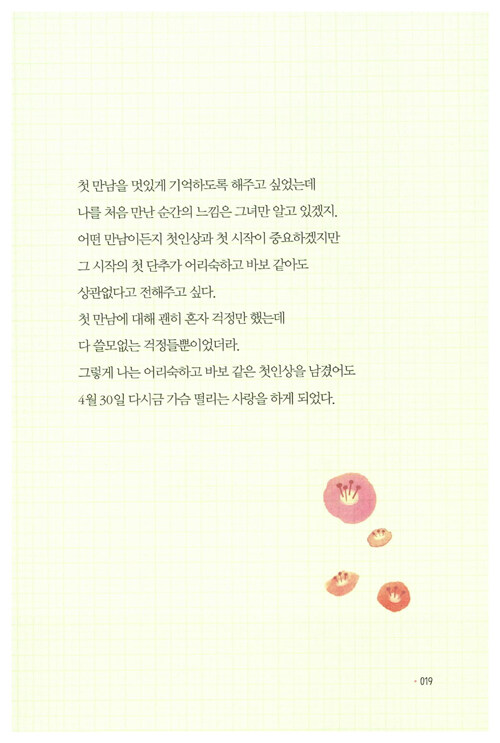 첫 만남을 멋있게 기억하도록 해주고 싶었는데
나를 처음 만난 순간의 느낌은 그녀만 알고 있겠지.
어떤 만남이든지 첫인상과 첫 시작이 중요하겠지만
그 시작의 첫 단추가 어리숙하고 바보 같아도
상관없다고 전해주고 싶다.
첫 만남에 대해 괜히 혼자 걱정만 했는데
다 쓸모없는 걱정들뿐이었더라.
그렇게 나는 어리숙하고 바보 같은 첫인상을 남겼어도
4월 30일 다시금 가슴 떨리는 사랑을 하게 되었다.
• 019